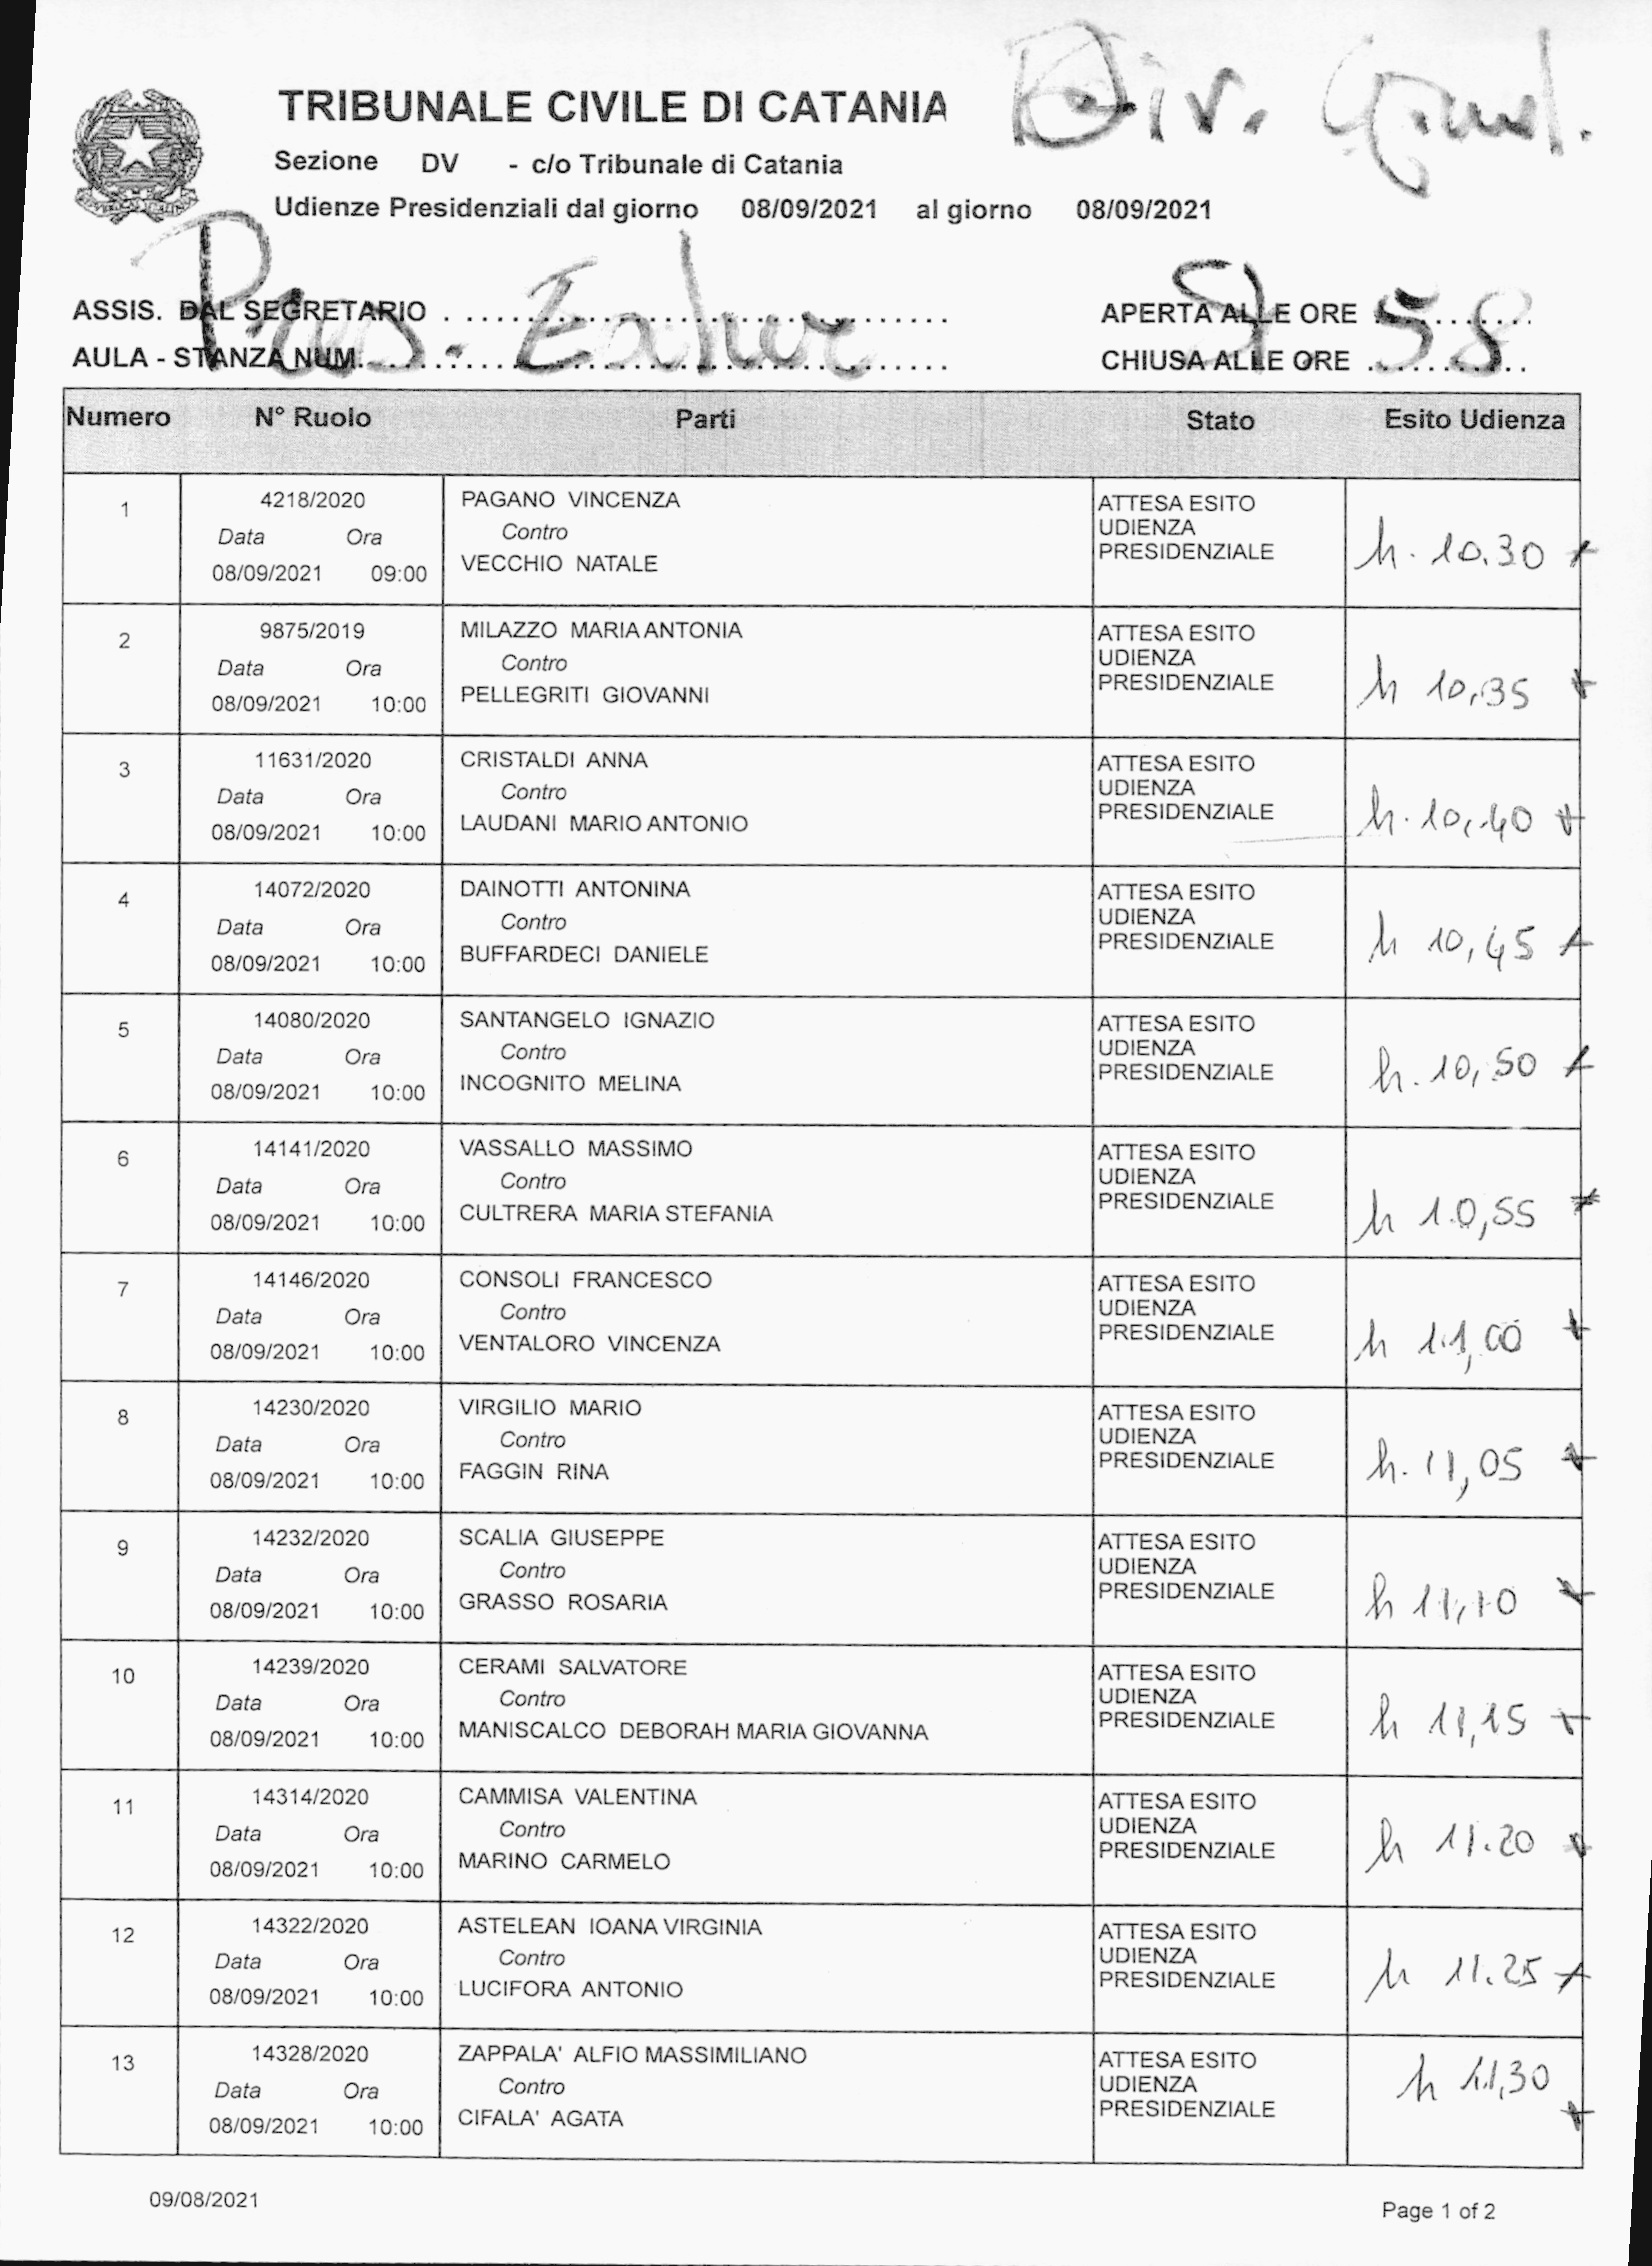 Div. Giud.
TRIBUNALE CIVILE DI CATANIA
Sezione DV - c/o Tribunale di Catania
Udienze Presidenziali dal giorno 08/09/2021 al giorno 08/09/2021
Pres.
ASSIS. DAL SEGRETARIO
APERTA ALLE ORE
58
AULA - STANZA NUM.
CHIUSA ALLE ORE
Numero N° Ruolo Parti Stato Esito Udienza
1 4218/2020 PAGANO VINCENZA ATTESA ESITO
Data Ora Contro UDIENZA
08/09/2021 09:00 VECCHIO NATALE PRESIDENZIALE h. 10.30
2 9875/2019 MILAZZO MARIA ANTONIA ATTESA ESITO
Data Ora Contro UDIENZA
08/09/2021 10:00 PELLEGRITI GIOVANNI PRESIDENZIALE h 10,35
3 11631/2020 CRISTALDI ANNA ATTESA ESITO
Data Ora Contro UDIENZA
08/09/2021 10:00 LAUDANI MARIO ANTONIO PRESIDENZIALE h. 10,40
4 14072/2020 DAINOTTI ANTONINA ATTESA ESITO
Data Ora Contro UDIENZA
08/09/2021 10:00 BUFFARDECI DANIELE PRESIDENZIALE h 10,45
5 14080/2020 SANTANGELO IGNAZIO ATTESA ESITO
Data Ora Contro UDIENZA
08/09/2021 10:00 INCOGNITO MELINA PRESIDENZIALE h. 10,50
6 14141/2020 VASSALLO MASSIMO ATTESA ESITO
Data Ora Contro UDIENZA
08/09/2021 10:00 CULTRERA MARIA STEFANIA PRESIDENZIALE h 10,55
7 14146/2020 CONSOLI FRANCESCO ATTESA ESITO
Data Ora Contro UDIENZA
08/09/2021 10:00 VENTALORO VINCENZA PRESIDENZIALE h 11,00
8 14230/2020 VIRGILIO MARIO ATTESA ESITO
Data Ora Contro UDIENZA
08/09/2021 10:00 FAGGIN RINA PRESIDENZIALE h. 11,05
9 14232/2020 SCALIA GIUSEPPE ATTESA ESITO
Data Ora Contro UDIENZA
08/09/2021 10:00 GRASSO ROSARIA PRESIDENZIALE h 11,10
10 14239/2020 CERAMI SALVATORE ATTESA ESITO
Data Ora Contro UDIENZA
08/09/2021 10:00 MANISCALCO DEBORAH MARIA GIOVANNA PRESIDENZIALE h 11,15
11 14314/2020 CAMMISA VALENTINA ATTESA ESITO
Data Ora Contro UDIENZA
08/09/2021 10:00 MARINO CARMELO PRESIDENZIALE h 11.20
12 14322/2020 ASTELEAN IOANA VIRGINIA ATTESA ESITO
Data Ora Contro UDIENZA
08/09/2021 10:00 LUCIFORA ANTONIO PRESIDENZIALE h 11.25
13 14328/2020 ZAPPALA' ALFIO MASSIMILIANO ATTESA ESITO
Data Ora Contro UDIENZA h 11,30
08/09/2021 10:00 CIFALA' AGATA PRESIDENZIALE
09/08/2021 Page 1 of 2